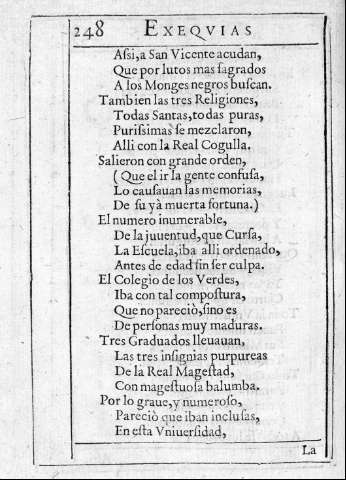 248 EXEQVIAS
Aſsi,a San Vicente acudan,
Que por lutos mas ſagrados
A los Monges negros buſcan.
Tambien las tres Religiones,
Todas Santas,todas puras,
Puriſsimas ſe mezclaron,
Alli con la Real Cogulla.
Salieron con grande orden,
(Que el ir la gente confuſa,
Lo cauſauan las memorias,
De ſu yà muerta fortuna.)
El numero inumerable,
De la juuentud,que Curſa,
La Eſcuela,iba alli ordenado,
Antes de edad ſin ſer culpa.
El Colegio de los Verdes,
Iba con tal compoſtura,
Que no pareciò,ſino es
De perſonas muy maduras.
Tres Graduados lleuauan,
Las tres inſignias purpureas
De la Real Mageſtad,
Con mageſtuoſa balumba.
Por lo graue,y numeroſo,
Pareciò que iban incluſas,
En eſta Vniuerſidad,
La